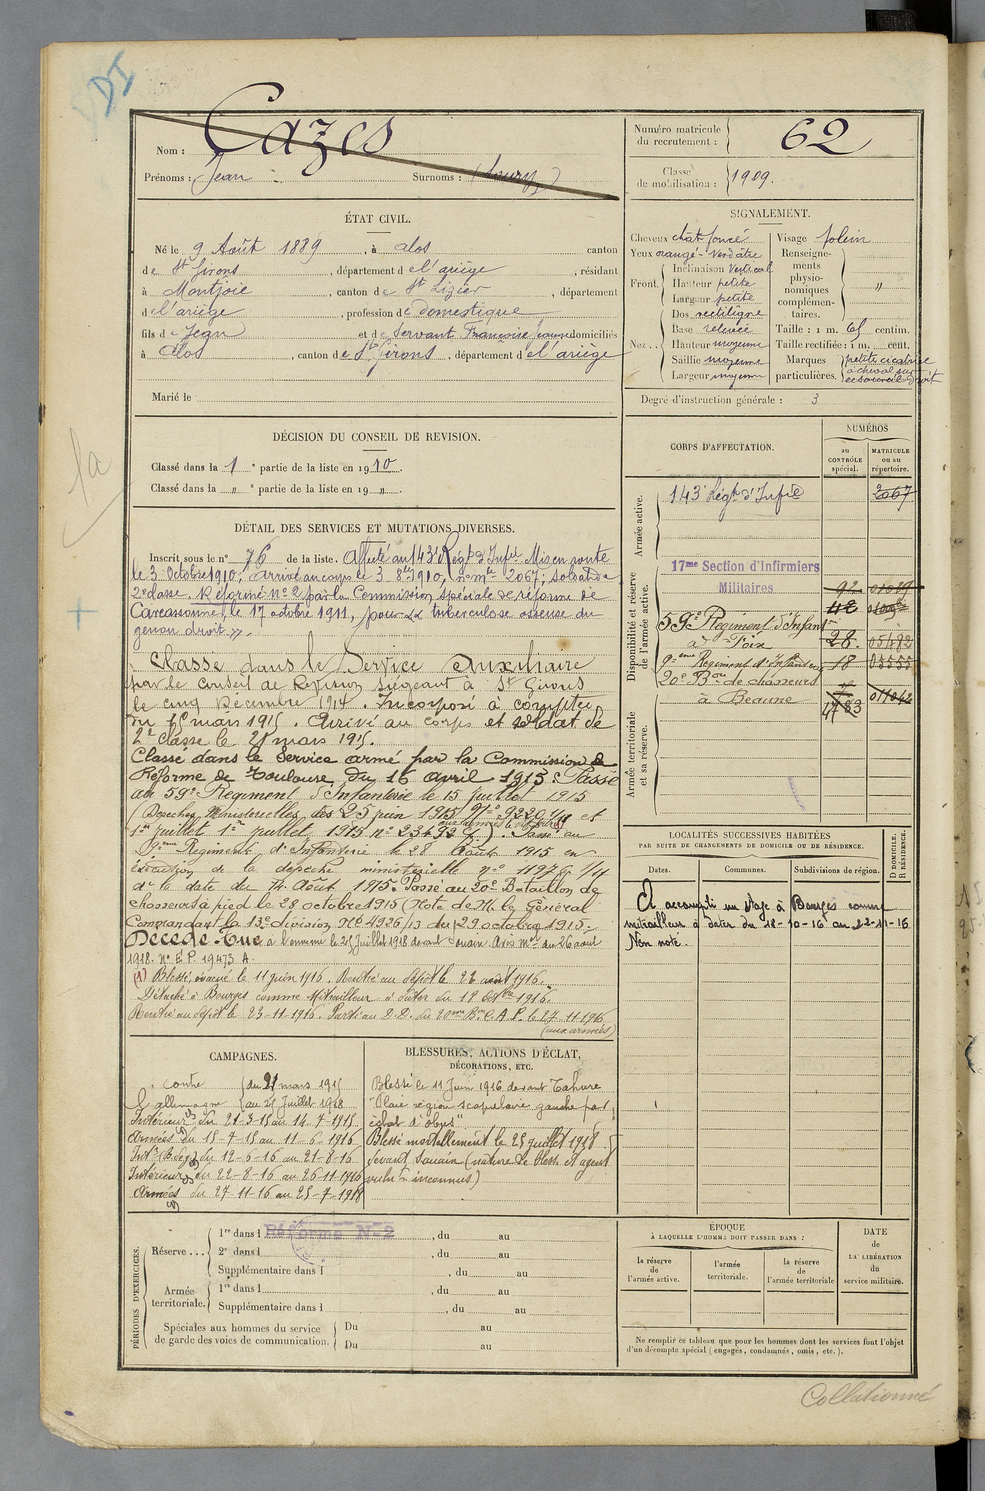 DI
Nom : Cazes
Prénoms : Jean Surnoms : (Soury)
Numéro matricule du recrutement : 62
Classe de mobilisation : 1909.
ÉTAT CIVIL.
Né le 9 Août 1889, à Alos canton
de St Girons, département de l'ariège, résidant
à Montjoie, canton de St Lizier, département
de l'ariège, profession de domestique
fils de Jean et de Servant Françoise Jeanne domiciliés
à Alos, canton de St Girons, département de l'ariège
Marié le
SIGNALEMENT.
Cheveux chât foncé
Yeux orangé-verdâtre
Front. Inclinaison vertical
Hauteur petite
Largeur petite
Nez .. Dos rectiligne
Base relevée
Hauteur moyenne
Saillie moyenne
Largeur moyenne
Visage plein
Renseignements physionomiques complémentaires. "
Taille : 1 m. 65 centim.
Taille rectifiée : 1 m. cent.
Marques particulières. petite cicatrice
à cheval sur
le sourcil droit
Degré d'instruction générale : 3
DÉCISION DU CONSEIL DE REVISION.
Classé dans la 1 e partie de la liste en 1910.
Classé dans la " e partie de la liste en 19 ".
CORPS D'AFFECTATION.
NUMÉROS
au CONTRÔLE spécial.
MATRICULE ou au répertoire.
Armée active.
143e Régt d'Infie 2067
Disponibilité et réserve de l'armée active.
17me Section d'Infirmiers
Militaires
59e Régiment d'Infant
à Foix 28. 05482
9ème Régiment d'Infanterie 18 03555
20e Bon de chasseurs
à Beaune 4783 011042
Armée territoriale et sa réserve.
DÉTAIL DES SERVICES ET MUTATIONS DIVERSES.
Inscrit sous le n° 76 de la liste. Affecté au 143e Régt d'Infie Mis en route
le 3 Octobre 1910; arrivé au corps le 3 8bre 1910, n° mle 2067; soldat de
2e classe. Réformé n° 2 par la Commission spéciale de réforme de
Carcassonne, le 17 octobre 1911, pour tuberculose osseuse du
genou droit ".
Classé dans le Service Auxiliaire
par le Conseil de Révision siégeant à St Girons
le cinq Décembre 1914. Incorporé à compter
du 15 mars 1915. Arrivé au corps et soldat de
2e classe le 21 mars 1915.
Classé dans le Service armé par la Commission de
Réforme de Toulouse, du 16 avril 1915. Passé
au 59e Régiment d'Infanterie le 15 juillet 1915
(Dépêches Ministérielles des 25 juin 1915 N° 9220 1/9 et
1er juillet 1915 n° 23492 ). Passé au
9ème Régiment d'Infanterie le 28 Août 1915 en
exécution de la dépêche ministérielle n° 11978 1/4
de la date du 14 Août 1915. Passé au 20e Bataillon de
chasseurs à pied le 28 octobre 1915 (Note de M. le Général
Commandant la 13e division N° 4926/13 du 29 octobre 1915.
Décédé-Tué à l'ennemi le 25 Juillet 1918 devant Souain. Avis Mel du 26 août
1918. N° E.P. 19473 A.
(1) Blessé, évacué le 11 juin 1916. Rentré au dépôt le 22 août 1916.
Détaché à Bourges comme Mitrailleur à dater du 12 Octbre 1916.
Rentré au dépôt le 23-11-1916. Parti au D.D. du 20ème Bon C.A.P. le 27-11-1916
(aux armées)
LOCALITÉS SUCCESSIVES HABITÉES
PAR SUITE DE CHANGEMENTS DE DOMICILE OU DE RÉSIDENCE.
Dates. Communes. Subdivisions de région. D DOMICILE. R RÉSIDENCE.
A accompli un stage à Bourges comme
mitrailleur à dater du 12-10-16 au 22-11-16
Non noté.
CAMPAGNES.
Contre l'allemagne du 21 mars 1915
au 25 Juillet 1918
Intérieur du 21-3-15 au 14-7-1915
Armées du 15-7-15 au 11-6-1916
Intr (Bl.) du 12-6-16 au 21-8-16
Intérieur du 22-8-16 au 26-11-1916
Armées du 27-11-16 au 25-7-1918
BLESSURES, ACTIONS D'ÉCLAT,
DÉCORATIONS, ETC.
Blessé le 11 Juin 1916 devant Tahure
"Plaie région scapulaire gauche par
éclat d'obus"
Blessé mortellement le 25 juillet 1918
devant Souain (nature de bless et agent
vulnt inconnus)
PÉRIODES D'EXERCICES.
Réserve . . . 1re dans l Réforme N°2, du au
2e dans l, du au
Supplémentaire dans l, du au
Armée territoriale. 1re dans l, du au
Supplémentaire dans l, du au
Spéciales aux hommes du service de garde des voies de communication. Du au
Du au
ÉPOQUE
À LAQUELLE L'HOMME DOIT PASSER DANS :
la réserve de l'armée active.
l'armée territoriale.
la réserve de l'armée territoriale
DATE de LA LIBÉRATION du service militaire.
Ne remplir ce tableau que pour les hommes dont les services font l'objet
d'un décompte spécial (engagés, condamnés, omis, etc.).
Collationné